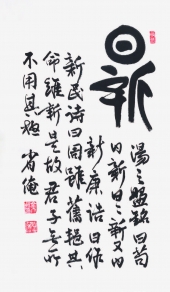 日新
湯之盤銘曰苟
日新日々新又日
新康誥曰作
新民詩曰周雖舊邦其
命維新是故君子無所
不用其極